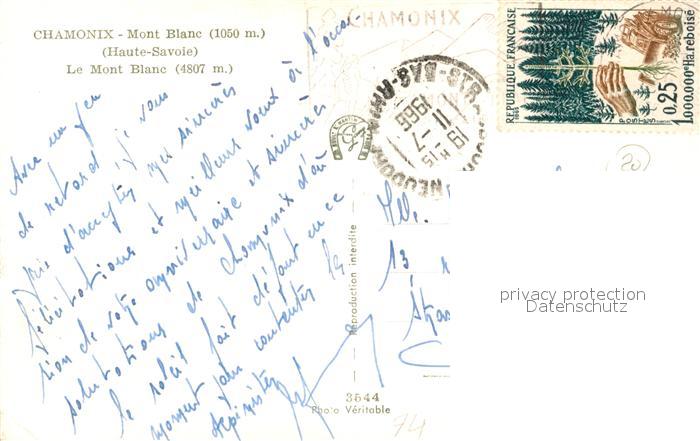 CHAMONIX - Mont Blanc (1050 m.)
(Haute-Savoie)
Le Mont Blanc (4807 m.)
Avec un peu
de retard je vous
prie d'accepter mes sincères
félicitations et meilleurs voeux à l'occa-
sion de votre anniversaire et sincères
salutations de Chamonix d'où
le soleil fait défaut en ce
moment pour contenter les
alpinistes
Reproduction interdite
3544
Photo Véritable
74
CHAMONIX
STRASBOURG NEUDORF
BAS-RHIN
19 H 15
11-7
1966
REPUBLIQUE FRANÇAISE
1.000.000e Ha. reboisé
POSTES
0,25
20
Mlle.
13
Stras
privacy protection
Datenschutz